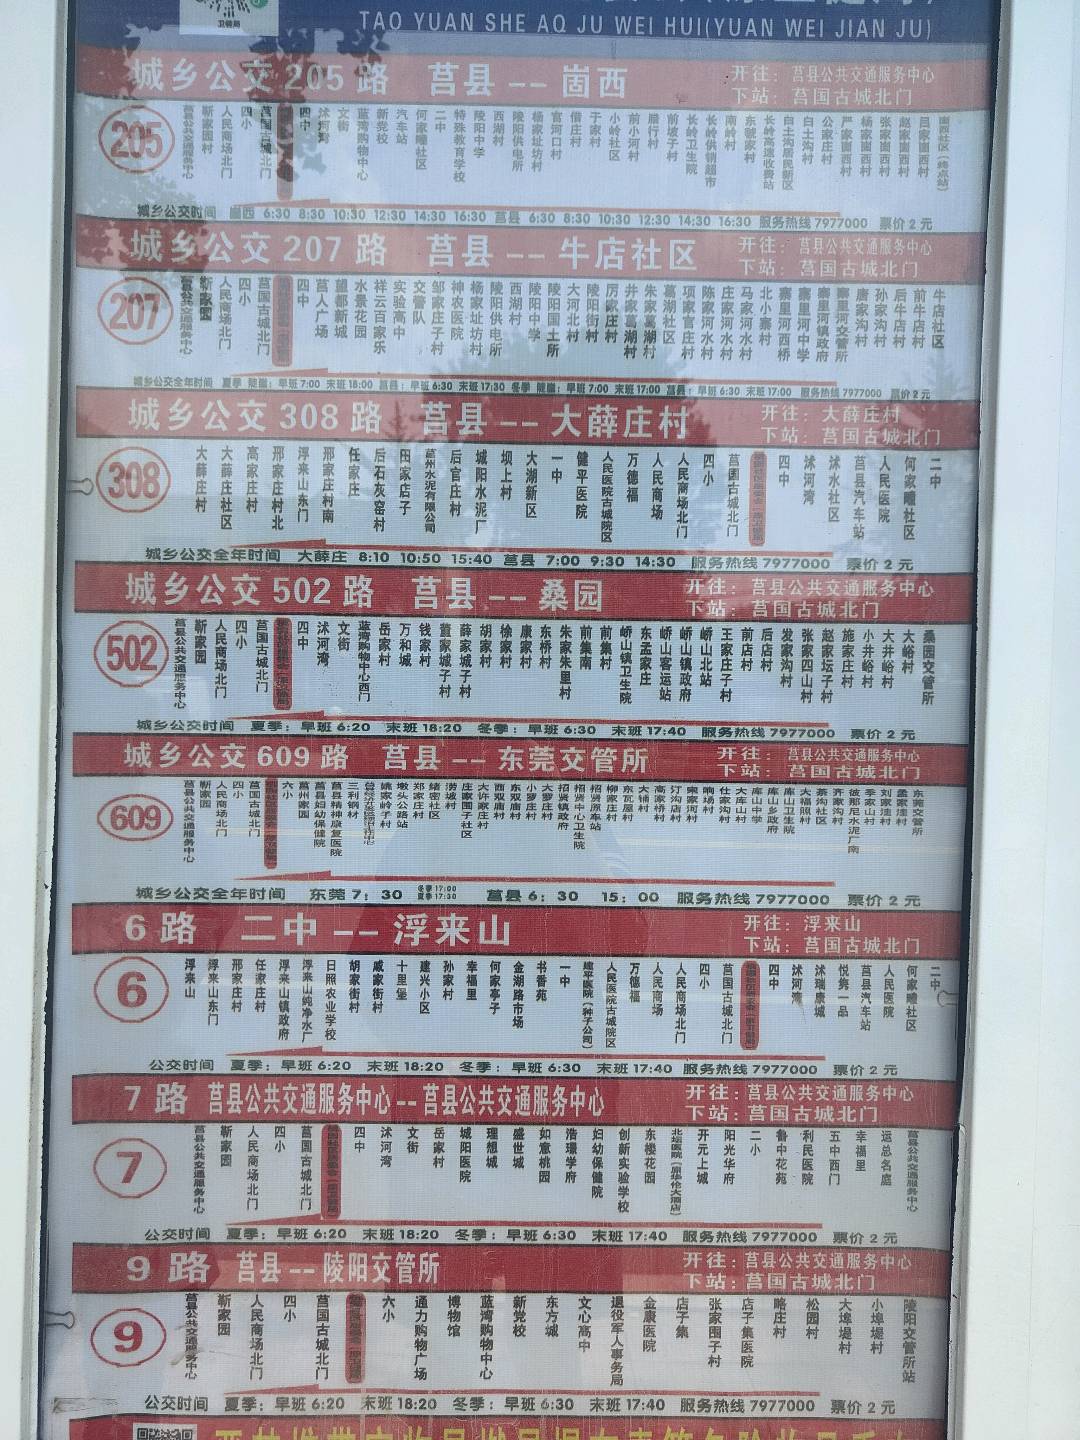 卫健局
TAO YUAN SHE AQ JU WEI HUI(YUAN WEI JIAN JU)
城乡公交 205 路 莒县 -- 崮西
开往：莒县公共交通服务中心
下站：莒国古城北门
205
莒县公共交通服务中心 靳家园村 人民商场北门 四小 莒国古城北门 四中 沭河湾 文街 蓝湾购物中心 新党校 汽车站 何家疃社区 二中 特殊教育学校 陵阳中学 西湖村 陵阳供电所 杨家址坊村 官河口村 借庄村 于家村 小岭社区 前小河村 腊行村 前坡子村 长岭卫生院 长岭供销超市 南岭村 东虢家村 长岭高速收费站 白土沟居民新区 白土沟村 公家庄村 严家崮西村 杨家崮西村 张家崮西村 赵家崮西村 吕家崮西村 崮西社区（终点站）
城乡公交时间 崮西 6:30 8:30 10:30 12:30 14:30 16:30 莒县 6:30 8:30 10:30 12:30 14:30 16:30 服务热线 7977000 票价 2 元
城乡公交 207 路 莒县 -- 牛店社区
开往：莒县公共交通服务中心
下站：莒国古城北门
207
莒县公共交通服务中心 靳家园 人民商场北门 四小 莒国古城北门 四中 莒人广场 望都新城 水景花园 祥云百家乐 实验高中 交警队 邹家庄子村 神农医院 杨家址坊村 陵阳供电所 西湖村 陵阳中学 陵阳国土所 大河北村 陵阳街村 厉家庄村 井家葛湖村 朱家葛湖村 葛湖社区 项家官庄村 陈家河水村 庄家河水村 马家河水村 北小寨村 寨里河西桥 寨里河中学 寨里河镇政府 寨里河交管所 唐家沟村 孙家沟村 后牛店村 前牛店村 牛店社区
城乡公交全年时间 夏季 陵阳：早班 7:00 末班 18:00 莒县：早班 6:30 末班 17:30 冬季 陵阳：早班 7:00 末班 17:00 莒县：早班 6:30 末班 17:00 服务热线 7977000 票价 2 元
城乡公交 308 路 莒县 -- 大薛庄村
开往：大薛庄村
下站：莒国古城北门
308
大薛庄村 大薛庄社区 高家庄村 邢家庄村北 浮来山东门 邢家庄村南 任家庄 后石灰窑村 田家店子 莒州水泥有限公司 后官庄村 城阳水泥厂 坝上村 大湖新区 一中 健平医院 人民医院古城院区 万德福 人民商场 人民商场北门 四小 莒国古城北门 四中 沭河湾 沭水社区 莒县汽车站 人民医院 何家疃社区 二中
城乡公交全年时间 大薛庄 8:10 10:50 15:40 莒县 7:00 9:30 14:30 服务热线 7977000 票价 2 元
城乡公交 502 路 莒县 -- 桑园
开往：莒县公共交通服务中心
下站：莒国古城北门
502
莒县公共交通服务中心 靳家园 人民商场北门 四小 莒国古城北门 四中 沭河湾 文街 蓝湾购物中心西门 岳家村 万和城 钱家村 董家城子村 薛家城子村 胡家村 徐家村 康家村 东桥村 朱家朱里村 前集南 前集村 峤山镇卫生院 东孟家庄 峤山客运站 峤山镇政府 峤山北站 王家庄子村 前店村 后店村 发家沟村 张家四山村 赵家坛子村 施家庄村 小井峪村 大井峪村 大峪村 桑园交管所
城乡公交时间 夏季：早班 6:20 末班 18:20 冬季：早班 6:30 末班 17:40 服务热线 7977000 票价 2 元
城乡公交 609 路 莒县 -- 东莞交管所
开往：莒县公共交通服务中心
下站：莒国古城北门
609
莒县公共交通服务中心 靳家园 人民商场北门 四小 莒国古城北门 六小 莒州家园 莒县妇幼保健院 莒县精神康复医院 三利钢材 姚家岭子村 墩头公路站 郑家庄村 绪密社区 涝坡村 庄家围子社区 大许家庄村 西双庙村 东双庙村 小罗庄村 大罗庄村 招贤镇政府 招贤中心卫生院 招贤原车站 柳家庄村 东瓦屋村 大铺村 高家桥村 汀沟店村 宋家河村 响场村 仕家沟村 大库山村 库山中学 库山乡政府 库山卫生院 大福照村 寨沟社区 齐家沟村 彼那尼水泥厂南 季家山村 刘家洼村 孟家洼村 东莞交管所
城乡公交全年时间 东莞 7：30 冬季 17:00 夏季 17:30 莒县 6：30 15：00 服务热线 7977000 票价 2 元
6 路 二中 -- 浮来山
开往：浮来山
下站：莒国古城北门
6
浮来山 浮来山东门 邢家庄村 任家庄村 浮来山镇政府 浮来山纯净水厂 日照农业学校 胡家街村 戚家街村 十里堡 建兴小区 孙家村 幸福里 何家亭子 金湖路市场 书香苑 一中 建平医院（种子公司） 人民医院古城院区 万德福 人民商场 人民商场北门 四小 莒国古城北门 四中 沭河湾 沭瑞康城 悦隽一品 莒县汽车站 人民医院 何家疃社区 二中
公交时间 夏季：早班 6:20 末班 18:20 冬季：早班 6:30 末班 17:40 服务热线 7977000 票价 2 元
7 路 莒县公共交通服务中心 -- 莒县公共交通服务中心
开往：莒县公共交通服务中心
下站：莒国古城北门
7
莒县公共交通服务中心 靳家园 人民商场北门 四小 莒国古城北门 四中 沭河湾 文街 岳家村 城阳医院 理想城 盛世城 如意桃园 浩璟学府 妇幼保健院 创新实验学校 东楼花园 北坛医院（原华伦大酒店） 开元上城 阳光华府 二小 鲁中花苑 利民医院 五中西门 幸福里 运总名庭 莒县公共交通服务中心
公交时间 夏季：早班 6:20 末班 18:20 冬季：早班 6:30 末班 17:40 服务热线 7977000 票价 2 元
9 路 莒县 -- 陵阳交管所
开往：莒县公共交通服务中心
下站：莒国古城北门
9
莒县公共交通服务中心 靳家园 人民商场北门 四小 莒国古城北门 六小 通力购物广场 博物馆 蓝湾购物中心 新党校 东方城 文心高中 退役军人事务局 金康医院 店子集 张家围子村 店子集医院 略庄村 松园村 大埠堤村 小埠堤村 陵阳交管所站
公交时间 夏季：早班 6:20 末班 18:20 冬季：早班 6:30 末班 17:40 服务热线 7977000 票价 2 元